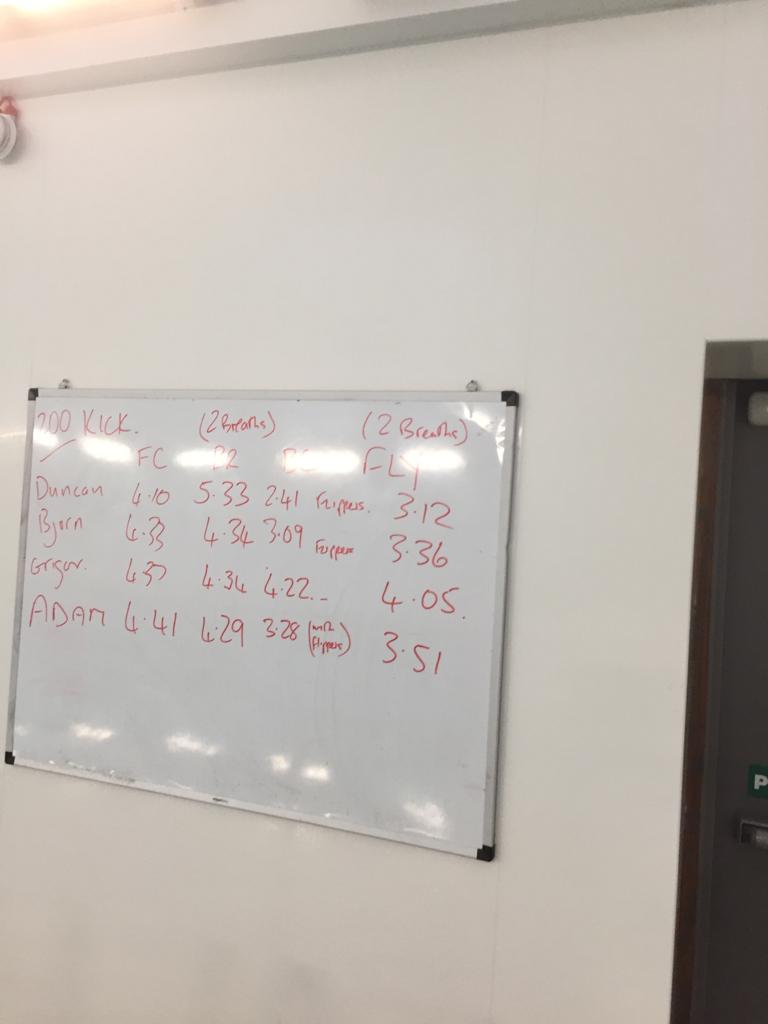 200 KICK. (2 Breaths) (2 Breaths).
FC BR BC FLY
Duncan 4.10 5.33 2.41 Flippers. 3.12
Bjorn 4.33 4.34 3.09 Flippers 3.36
Grigor. 4.34 4.22 4.05.
ADAM 4.41 4.29 3.28 (with flippers) 3.51
P